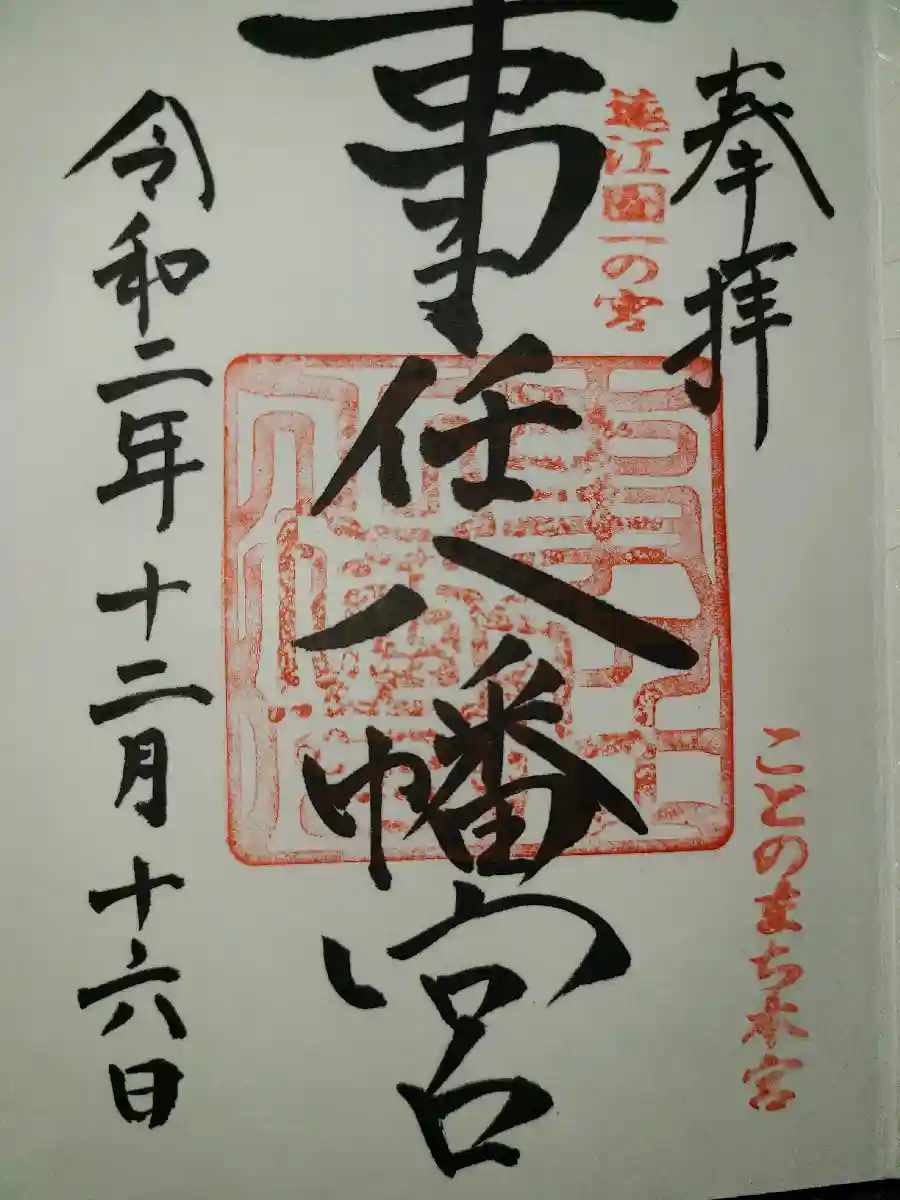 奉拝
遠江國一の宮
ことのまち本宮
事任八幡宮
令和二年十二月十六日